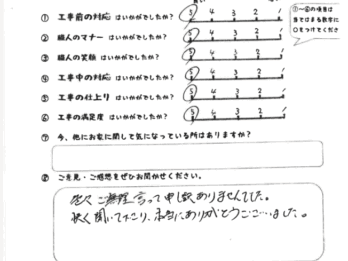 ① 工事前の対応 はいかがでしたか? 5 4 3 2 1
② 職人のマナー はいかがでしたか? 5 4 3 2 1
③ 職人の笑顔 はいかがでしたか? 5 4 3 2 1
④ 工事中の対応 はいかがでしたか? 5 4 3 2 1
⑤ 工事の仕上り はいかがでしたか? 5 4 3 2 1
⑥ 工事の満足度 はいかがでしたか? 5 4 3 2 1
①~⑥の項目は
当てはまる数字に
○をつけてくださ
⑦ 今、他にお家に関して気になっている所はありますか?
⑧ ご意見・ご感想をぜひお聞かせください。
ご無理言って申し訳ありませんでした。
快く聞いて下さり、本当にありがとうございました。